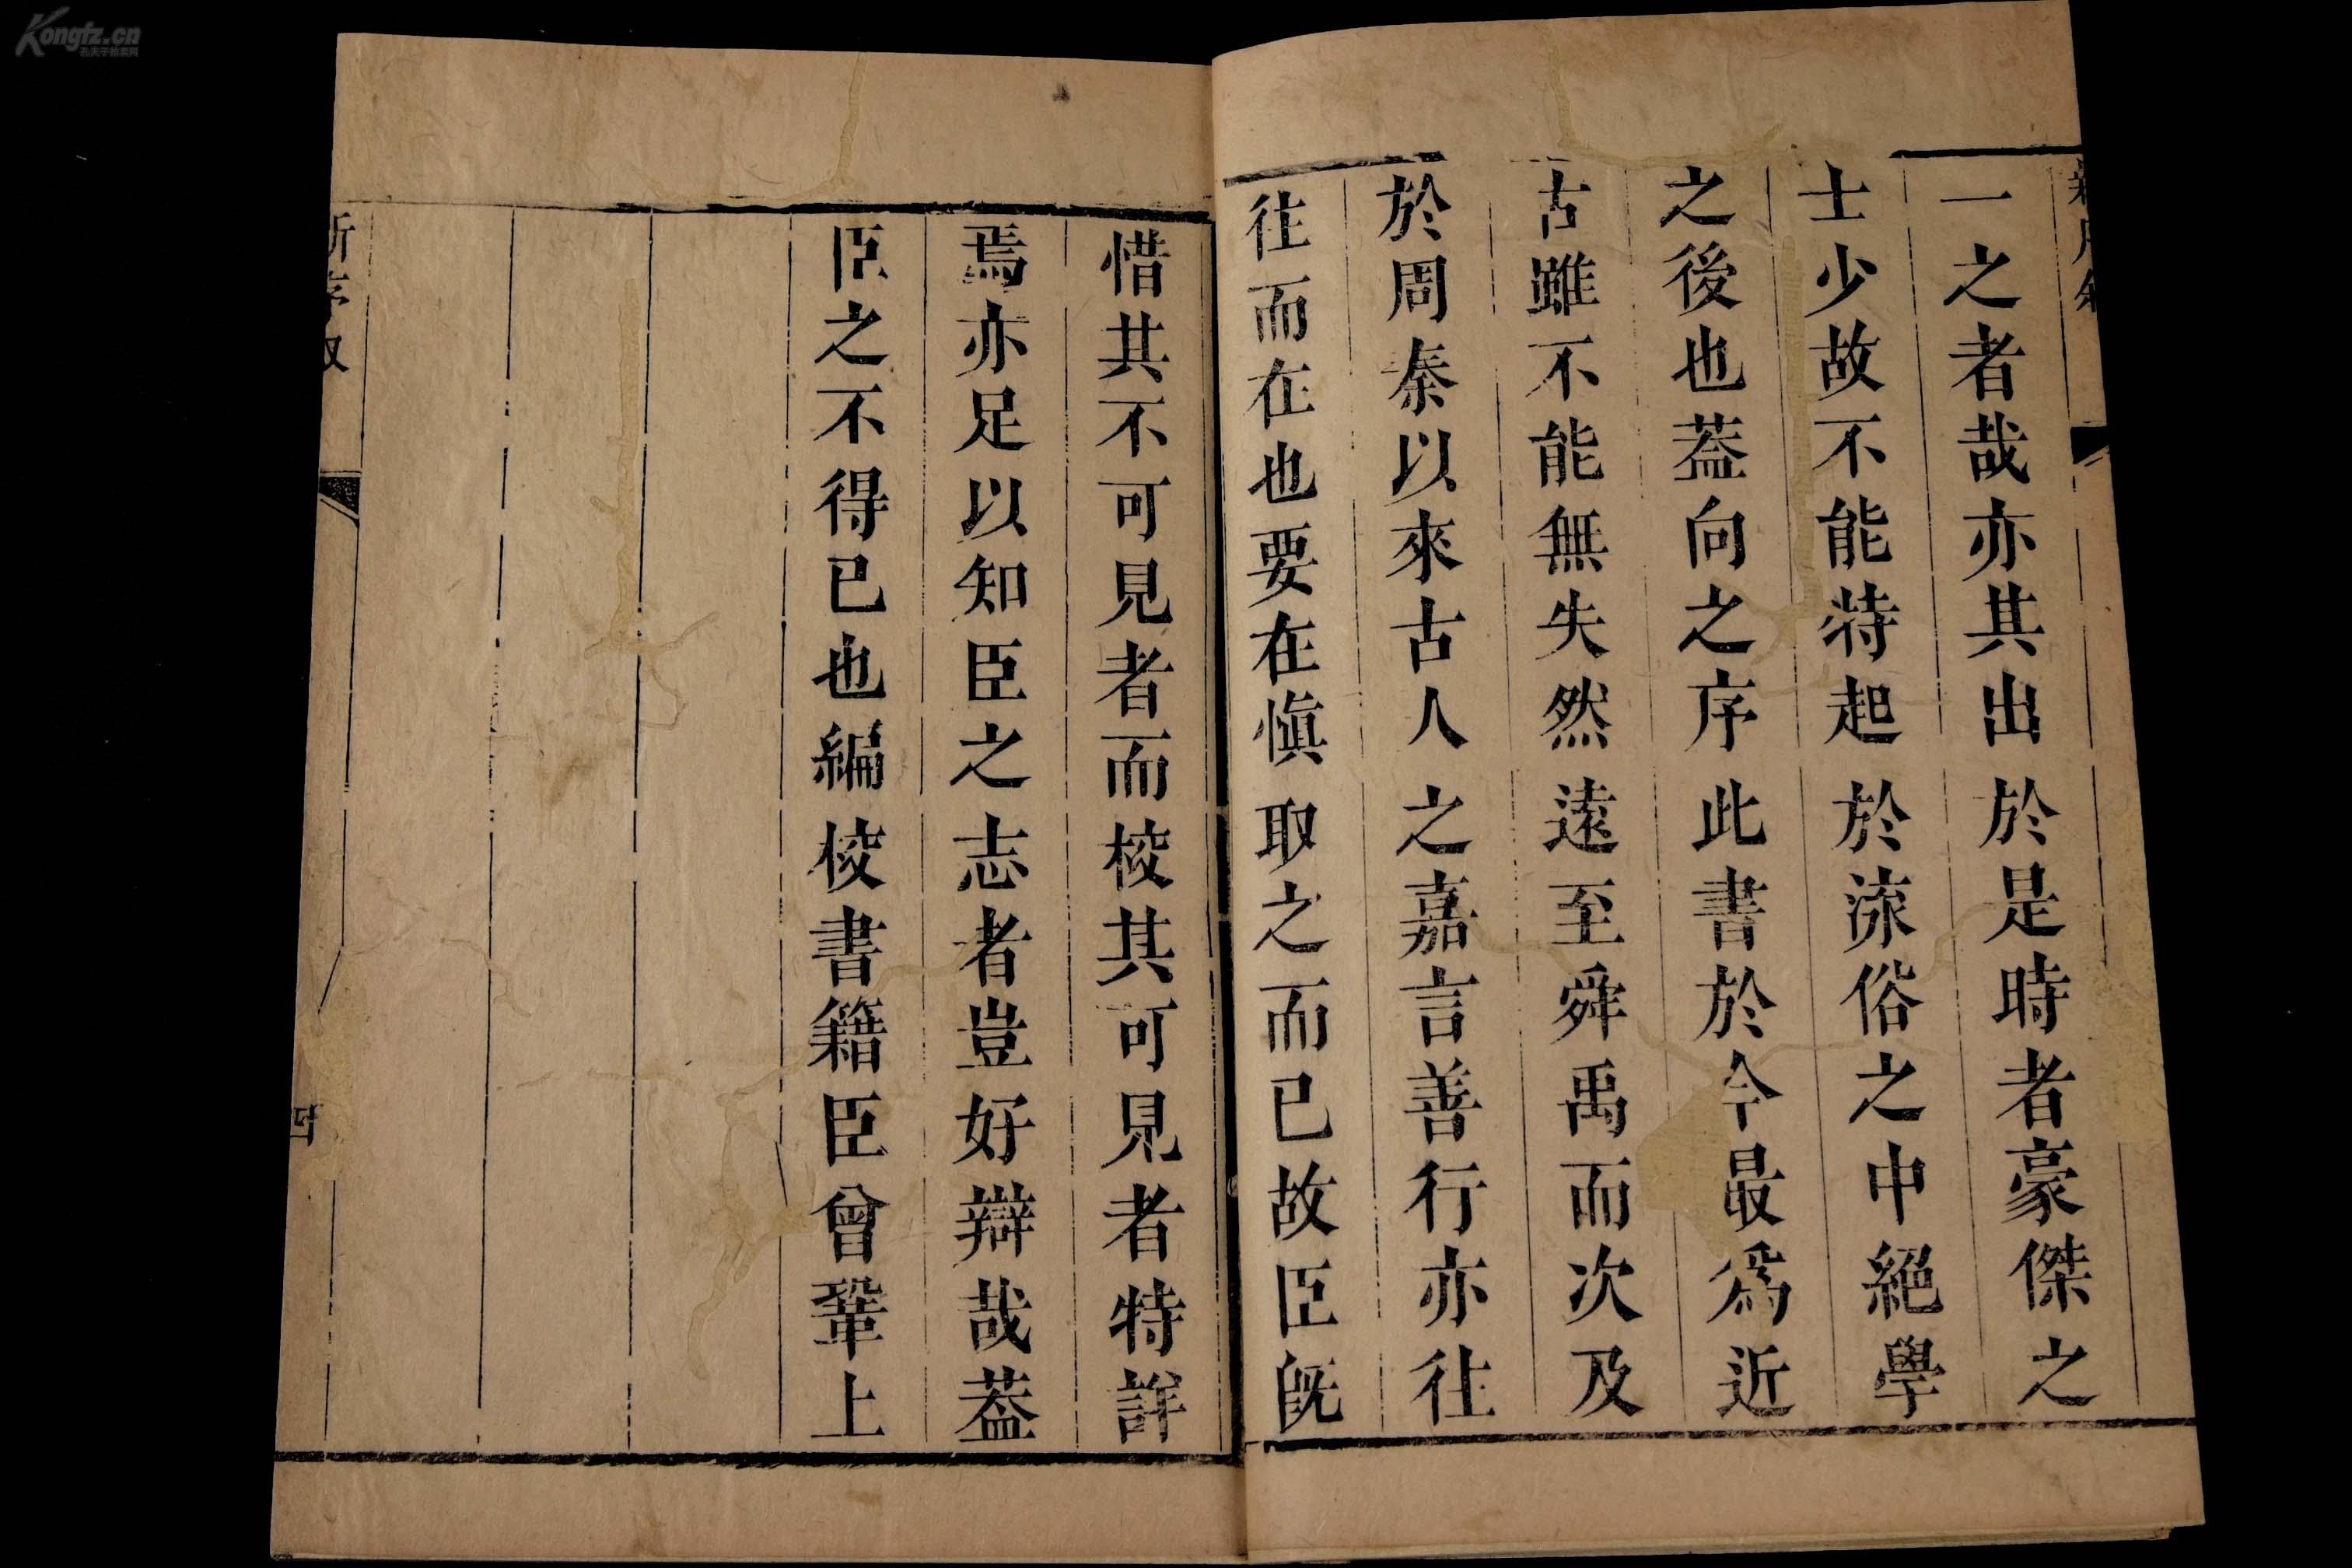 一之者哉亦其出於是時者豪傑之
士少故不能特起於流俗之中絕學
之後也葢向之序此書於今最為近
古雖不能無失然遠至舜禹而次及
於周秦以來古人之嘉言善行亦往
往而在也要在慎取之而已故臣既
惜其不可見者而校其可見者特詳
焉亦足以知臣之志者豈好辯哉葢
臣之不得已也編校書籍臣曾鞏上
新序叙
四
Kongfz.cn
孔夫子旧书网